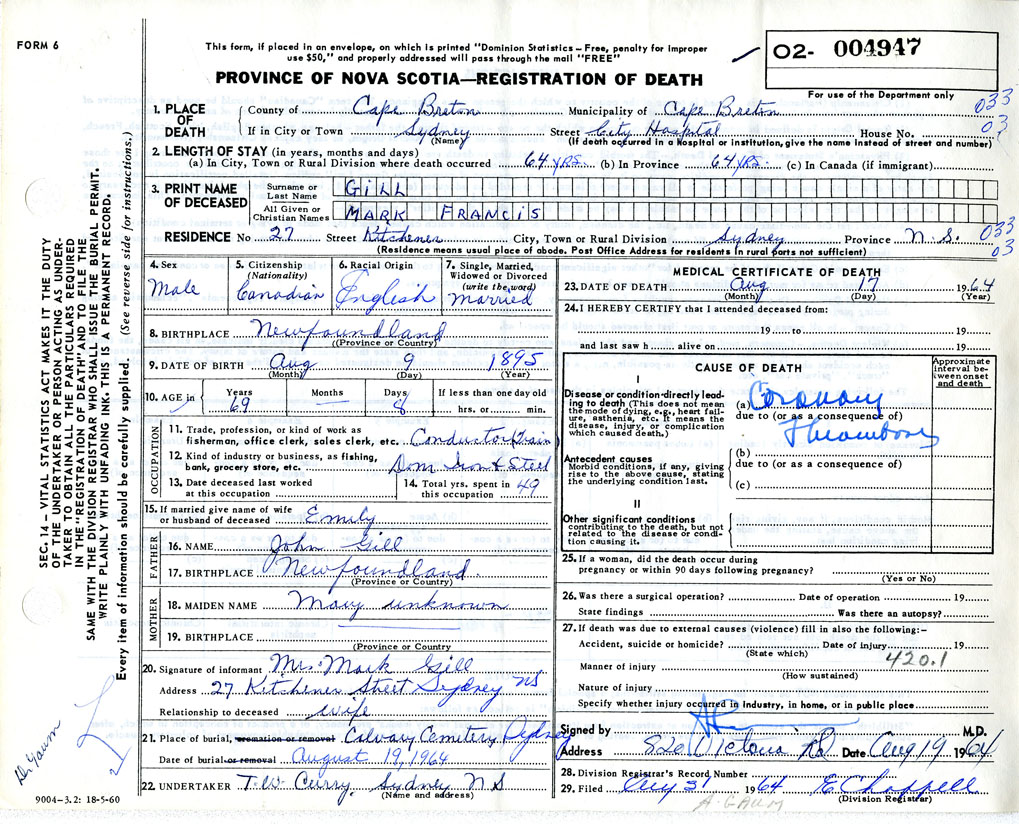 FORM 6
This form, if placed in an envelope, on which is printed "Dominion Statistics – Free, penalty for improper
use $50," and properly addressed will pass through the mail "FREE"
PROVINCE OF NOVA SCOTIA—REGISTRATION OF DEATH
02- 004947
For use of the Department only
1. PLACE OF DEATH County of Cape Breton Municipality of Cape Breton 033
If in City or Town Sydney Street City Hospital House No. 03
(Name) (If death occurred in a Hospital or institution, give the name instead of street and number)
2. LENGTH OF STAY (in years, months and days)
(a) In City, Town or Rural Division where death occurred 64 yrs. (b) In Province 64 yrs. (c) In Canada (if immigrant)
3. PRINT NAME OF DECEASED Surname or Last Name GILL
All Given or Christian Names MARK FRANCIS
RESIDENCE No 27 Street Kitchener City, Town or Rural Division Sydney Province N.S. 033
(Residence means usual place of abode. Post Office Address for residents in rural ports not sufficient) 03
4. Sex Male
5. Citizenship (Nationality) Canadian
6. Racial Origin English
7. Single, Married, Widowed or Divorced (write the word) married
8. BIRTHPLACE Newfoundland
(Province or Country)
9. DATE OF BIRTH Aug 9 1895
(Month) (Day) (Year)
10. AGE in Years 69 Months Days 8 If less than one day old hrs. or min.
OCCUPATION
11. Trade, profession, or kind of work as
fisherman, office clerk, sales clerk, etc. Conductor Train
12. Kind of industry or business, as fishing,
bank, grocery store, etc. Dom Iron & Steel
13. Date deceased last worked at this occupation
14. Total yrs. spent in this occupation 49
15. If married give name of wife
or husband of deceased Emily
FATHER
16. NAME John Gill
17. BIRTHPLACE Newfoundland
(Province or Country)
MOTHER
18. MAIDEN NAME Mary unknown
19. BIRTHPLACE
(Province or Country)
20. Signature of informant Mrs. Mark Gill
Address 27 Kitchener Street Sydney NS
Relationship to deceased wife
21. Place of burial, cremation or removal Calvary Cemetery Sydney
Date of burial or removal August 19, 1964
22. UNDERTAKER T.W. Curry, Sydney NS
(Name and address)
MEDICAL CERTIFICATE OF DEATH
23. DATE OF DEATH Aug 17 1964
(Month) (Day) (Year)
24. I HEREBY CERTIFY that I attended deceased from:
19 to 19
and last saw h alive on 19
CAUSE OF DEATH
Approximate interval between onset and death
I
Disease or condition directly leading
to death (This does not mean
the mode of dying, e.g., heart failure,
asthenia, etc. It means the
disease, injury, or complication
which caused death.)
(a) Coronary
due to (or as a consequence of)
Thrombosis
Antecedent causes
Morbid conditions, if any, giving
rise to the above cause, stating
the underlying condition last.
(b)
due to (or as a consequence of)
(c)
II
Other significant conditions
contributing to the death, but not
related to the disease or condition
causing it.
25. If a woman, did the death occur during
pregnancy or within 90 days following pregnancy?
(Yes or No)
26. Was there a surgical operation? Date of operation 19
State findings Was there an autopsy?
27. If death was due to external causes (violence) fill in also the following:–
Accident, suicide or homicide? Date of injury 19
(State which) 420.1
Manner of injury
(How sustained)
Nature of injury
Specify whether injury occurred in industry, in home, or in public place
Signed by M.D.
Address 820 Victoria Rd Date Aug 19 1964
28. Division Registrar's Record Number
29. Filed Aug 31 1964 E Chappell
(Division Registrar)
A. GAUM
SEC. 14 – VITAL STATISTICS ACT MAKES IT THE DUTY
OF THE UNDERTAKER OR PERSON ACTING AS UNDERTAKER
TO OBTAIN ALL THE PARTICULARS REQUIRED
IN THE "REGISTRATION OF DEATH" AND TO FILE THE
SAME WITH THE DIVISION REGISTRAR WHO SHALL ISSUE THE BURIAL PERMIT.
WRITE PLAINLY WITH UNFADING INK. THIS IS A PERMANENT RECORD.
Every item of information should be carefully supplied. (See reverse side for instructions.)
Dr Gaum
9004-3.2: 18-5-60